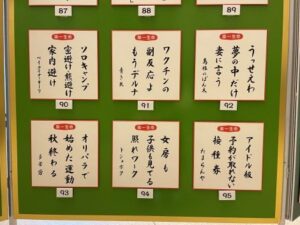 87
88
89
第一生命
うっせえわ
夢の中だけ
妻に言う
92
第一生命
ワクチンの
副反応よ
もうデルナ
91
第一生命
ソロキャンプ
密避け熊避け
家内避け
90
第一生命
アイドル級
予約が取れない
接種券
たまらんや
95
第一生命
女房も
子供も見てる
照れワーク
94
第一生命
オリパラで
始めた運動
秋終わる
93